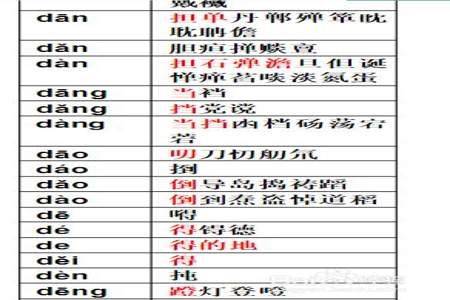 戴襶
dān 担单丹郸殚箪眈
耽聃儋
dǎn 胆疸掸赕亶
dàn 担石弹澹旦但诞
惮瘅萏啖淡氮蛋
dāng 当裆
dǎng 挡党谠
dàng 当挡凼档砀荡宕
菪
dāo 叨刀忉氘
dáo 捯
dǎo 倒导岛捣祷蹈
dào 倒到焘盗悼道稻
dē 嘚
dé 得锝德
de 得的地
děi 得
dèn 扽
dēng 蹬灯登噔